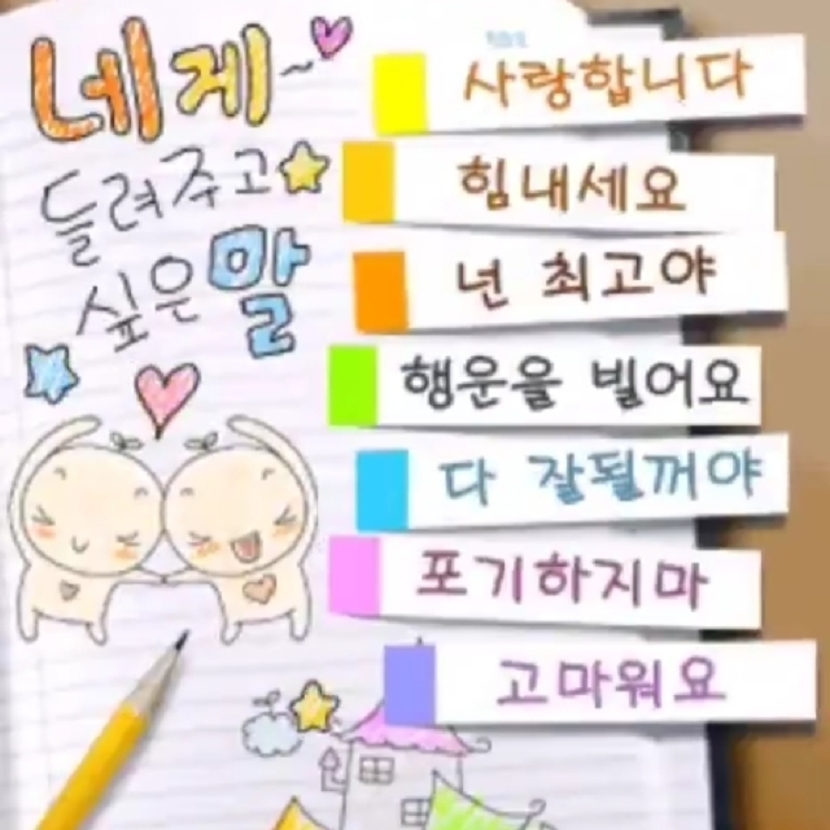 네게~
들려주고
싶은 말
사랑합니다
힘내세요
넌 최고야
행운을 빌어요
다 잘될꺼야
포기하지마
고마워요